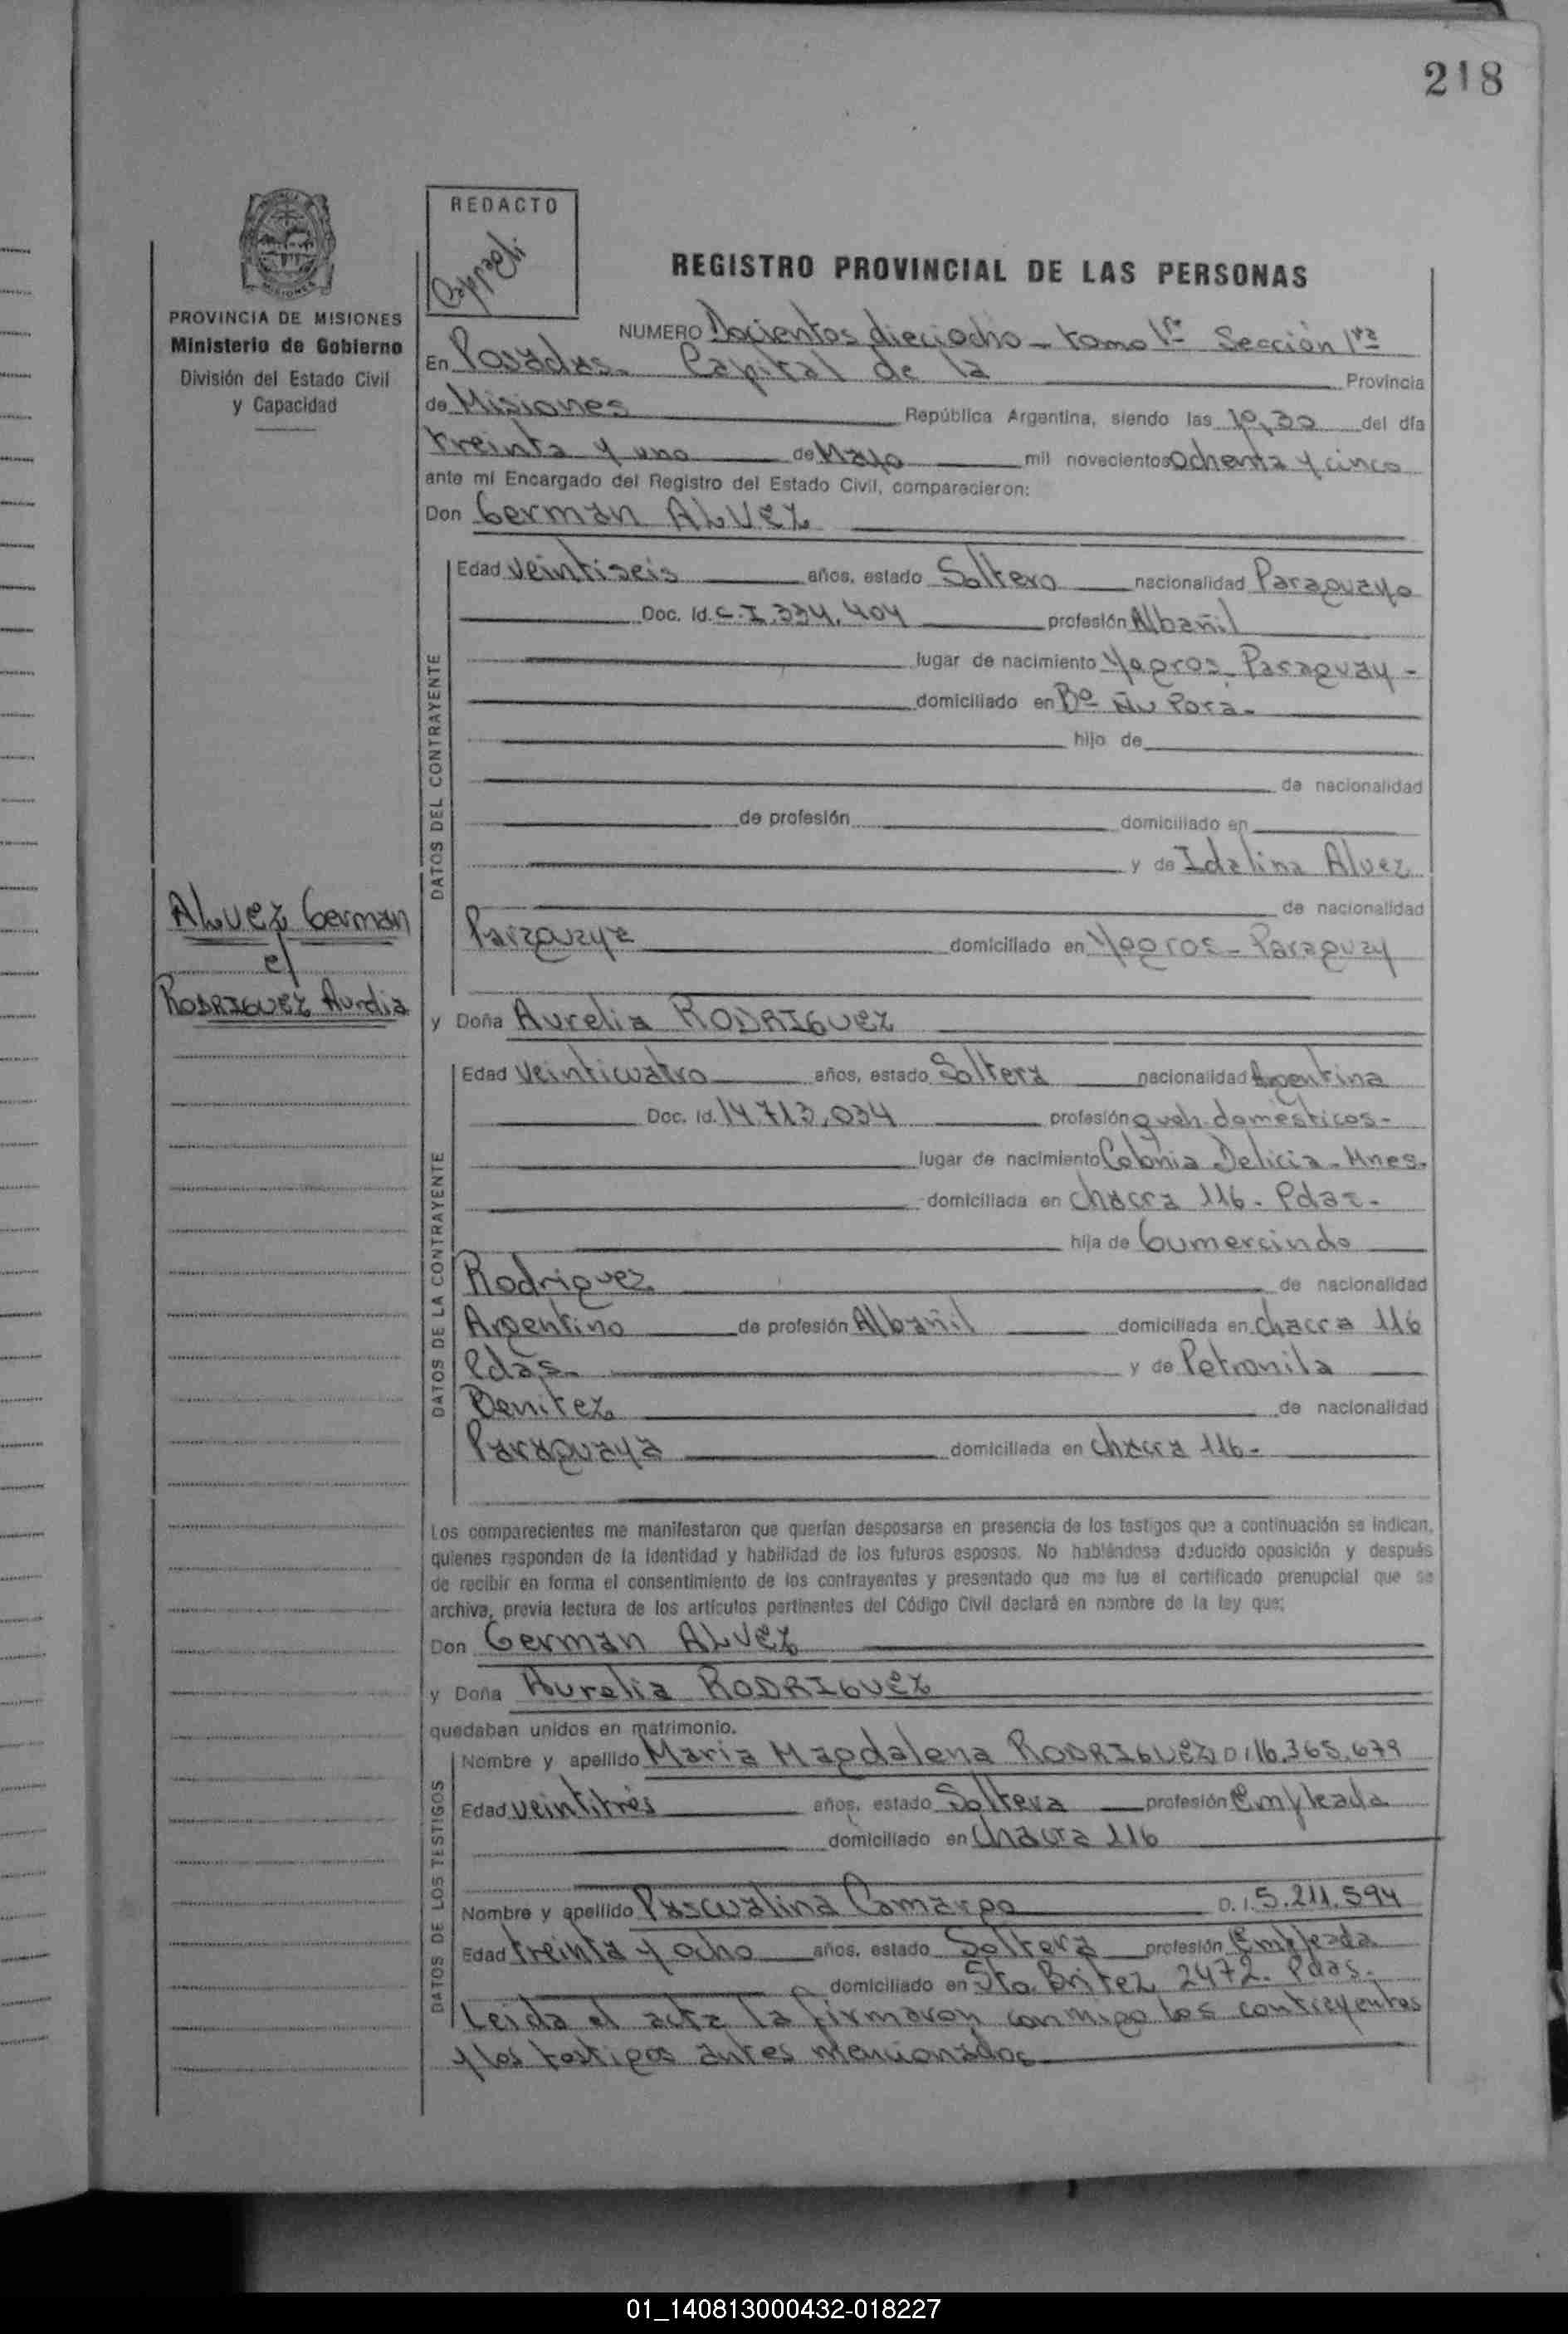 218
REDACTO
REGISTRO PROVINCIAL DE LAS PERSONAS
PROVINCIA DE MISIONES
Ministerio de Gobierno
División del Estado Civil
y Capacidad
NUMERO Docientos dieciocho - tomo 1º Sección 1ra
En Posadas. Capital de la Provincia
de Misiones República Argentina, siendo las 10,30 del día
treinta y uno de Mayo mil novecientos ochenta y cinco
ante mí Encargado del Registro del Estado Civil, comparecieron:
Don German ALVEZ
DATOS DEL CONTRAYENTE
Edad veintiseis años, estado Soltero nacionalidad Paraguayo
Doc. Id. C.I. 334.404 profesión Albañil
lugar de nacimiento Yegros Paraguay -
domiciliado en Bº Ñu Pora -
hijo de
de nacionalidad
de profesión domiciliado en
y de Idalina Alvez
de nacionalidad
Paraguaya domiciliado en Yegros - Paraguay
ALVEZ German
c/
RODRIGUEZ Aurelia
y Doña Aurelia RODRIGUEZ
DATOS DE LA CONTRAYENTE
Edad veinticuatro años, estado Soltera nacionalidad Argentina
Doc. Id. 14.713.034 profesión queh. domésticos -
lugar de nacimiento Colonia Delicia - Mnes.
domiciliada en chacra 116 - Pdas -
hija de Gumercindo
Rodriguez de nacionalidad
Argentino de profesión Albañil domiciliada en chacra 116
Pdas. y de Petronila
Benitez de nacionalidad
Paraguaya domiciliada en chacra 116 -
Los comparecientes me manifestaron que querían desposarse en presencia de los testigos que a continuación se indican,
quienes responden de la identidad y habilidad de los futuros esposos. No habiéndose deducido oposición y después
de recibir en forma el consentimiento de los contrayentes y presentado que me fue el certificado prenupcial que se
archiva, previa lectura de los artículos pertinentes del Código Civil declaré en nombre de la ley que:
Don German ALVEZ
y Doña Aurelia RODRIGUEZ
quedaban unidos en matrimonio.
DATOS DE LOS TESTIGOS
Nombre y apellido Maria Magdalena RODRIGUEZ D.I 16.365.679
Edad veintitrés años, estado Soltera profesión Empleada
domiciliado en Chacra 116
Nombre y apellido Pascualina Camargo D.I. 5.211.594
Edad treinta y ocho años, estado Soltera profesión Empleada
domiciliado en Sto. Britez 2472. Pdas.
Leida el acta la firmaron conmigo los contrayentes
y los testigos antes mencionados
01_140813000432-018227